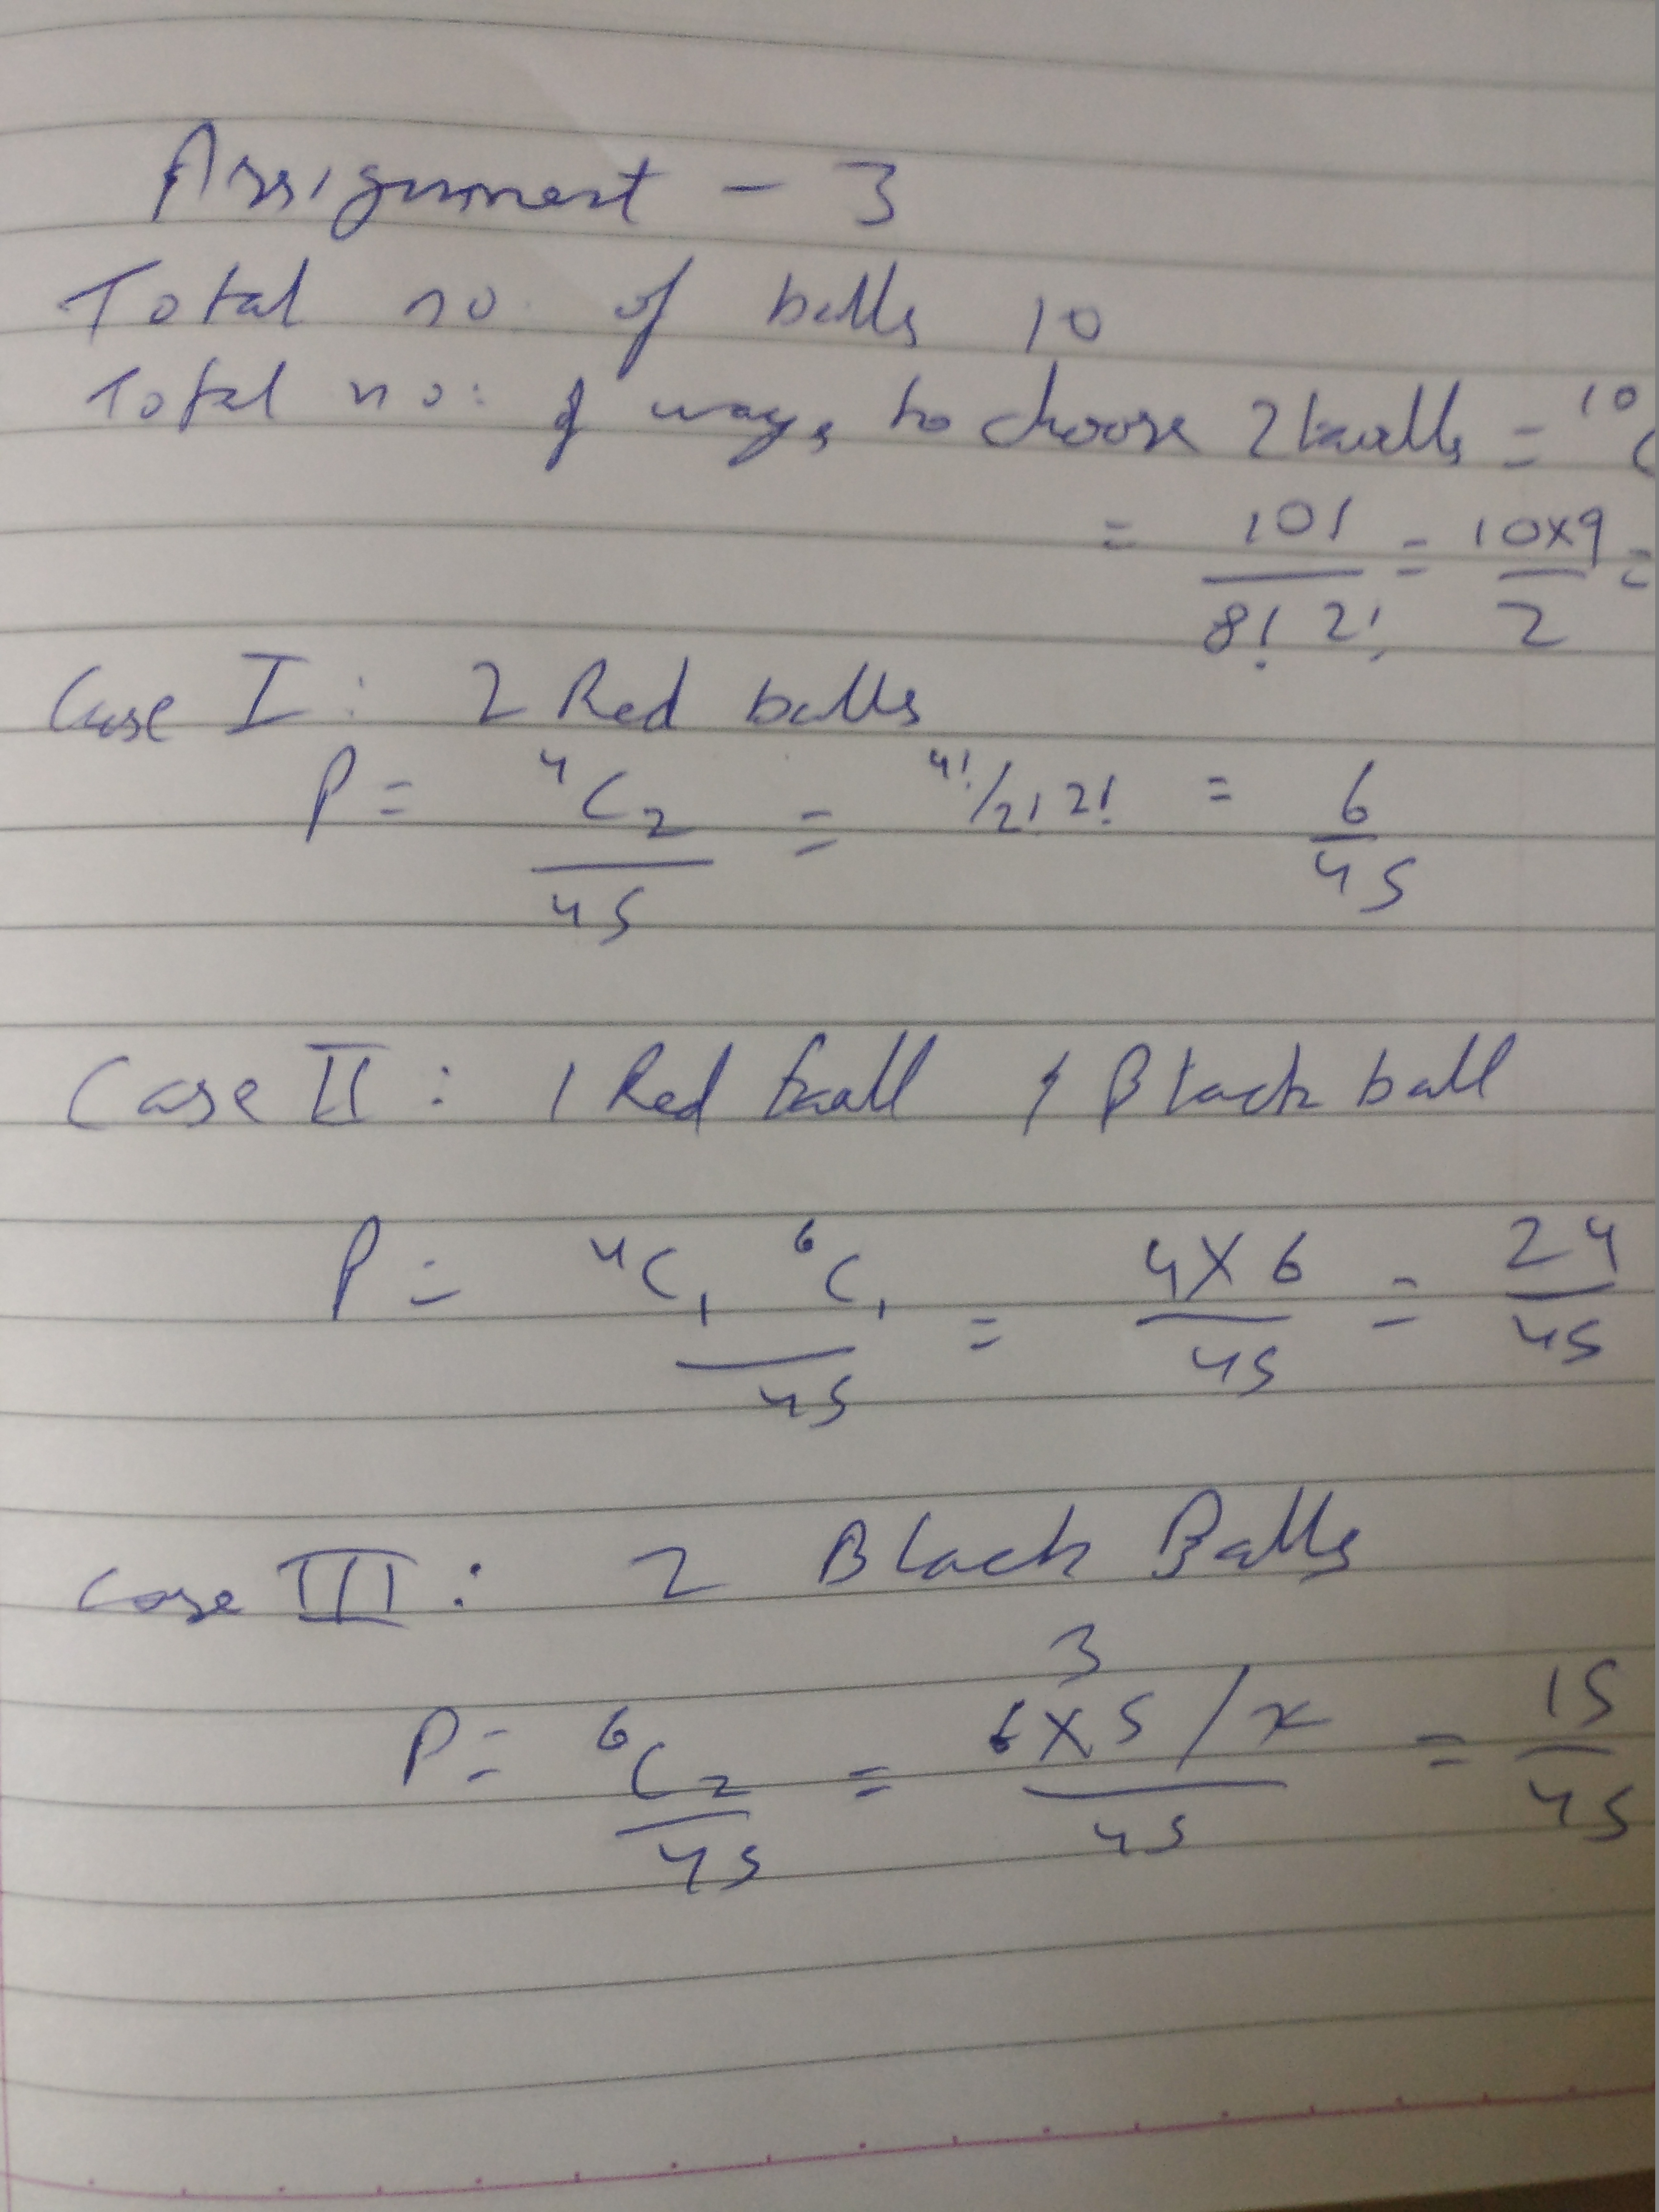 Assignment - 3
Total no. of balls 10
Total no: of ways to choose 2 balls = ¹⁰C
= 10! / 8! 2! = 10x9 / 2 =
Case I : 2 Red balls
P = ⁴C₂ / 45 = 4!/2! 2! = 6 / 45
Case II : 1 Red ball 1 Black ball
P = ⁴C₁ ⁶C₁ / 45 = 4 X 6 / 45 = 24 / 45
Case III : 2 Black Balls
3
P = ⁶C₂ / 45 = 6 X 5 / 2 / 45 = 15 / 45